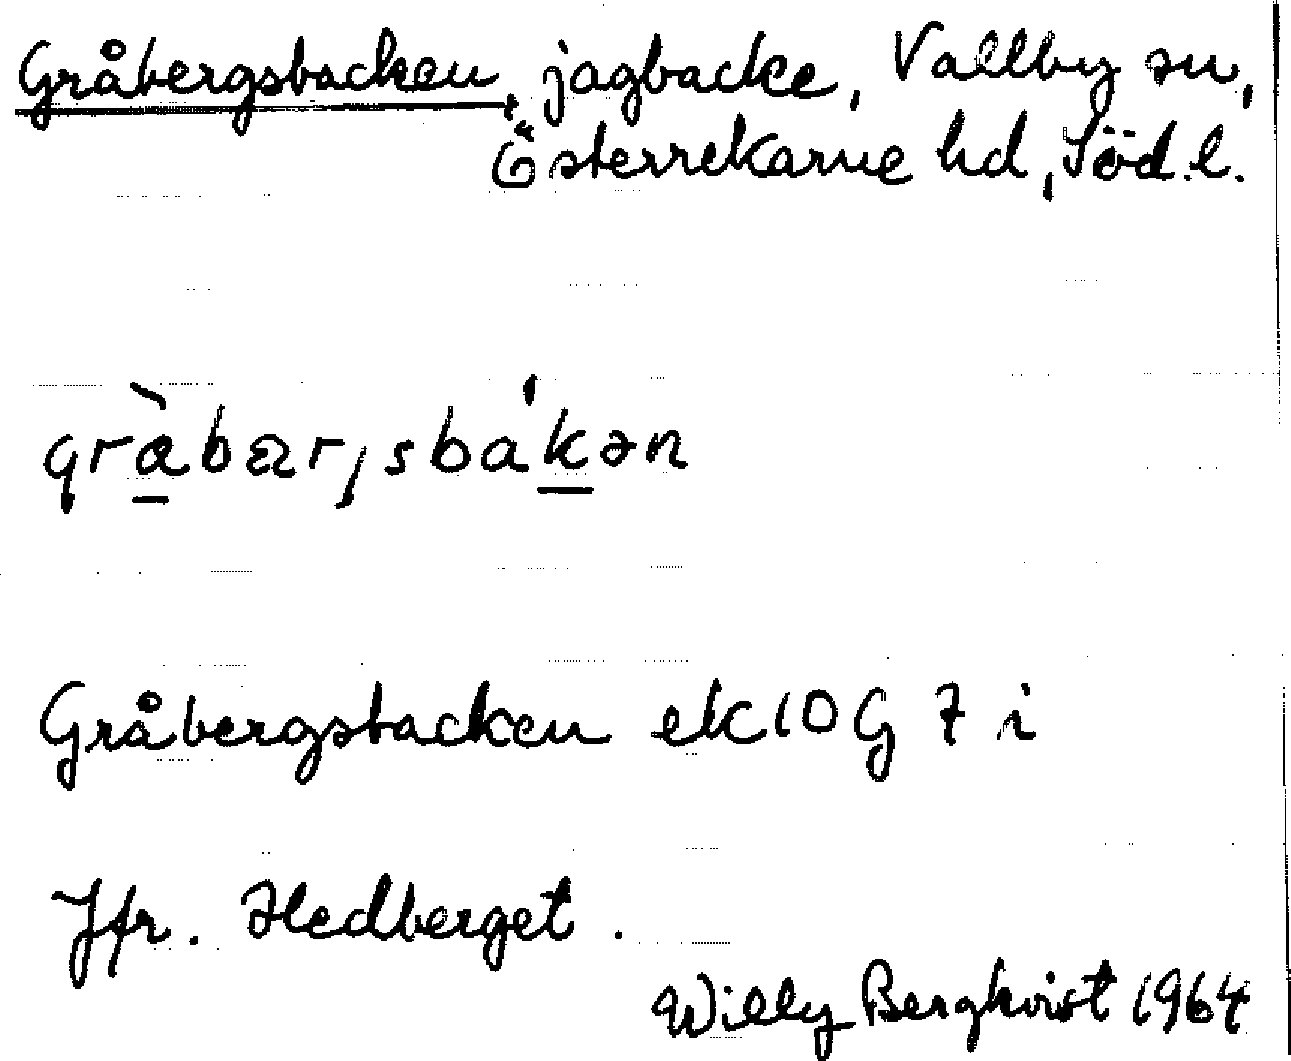 Gråbergsbacken, jagbacke, Vallby sn,
Österrekarne hd, Söd.l.
grὰbærjsbα'kən
Gråbergsbacken ek 10 G 7 i
Jfr. Hedberget.
Willy Bergkvist 1964